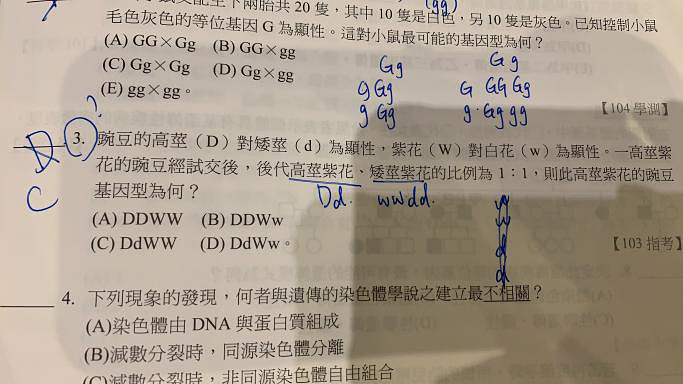 交配生下兩胎共 20 隻，其中 10 隻是白色，另 10 隻是灰色。已知控制小鼠
(gg)
毛色灰色的等位基因 G 為顯性。這對小鼠最可能的基因型為何？
(A) GG×Gg (B) GG×gg
(C) Gg×Gg (D) Gg×gg
(E) gg×gg。
Gg
g Gg
g Gg
Gg
G GG Gg
g Gg gg
【104 學測】
?
D
C
3. 豌豆的高莖（D）對矮莖（d）為顯性，紫花（W）對白花（w）為顯性。一高莖紫
花的豌豆經試交後，後代高莖紫花、矮莖紫花的比例為 1：1，則此高莖紫花的豌豆
基因型為何？
Dd. wwdd.
(A) DDWW (B) DDWw
(C) DdWW (D) DdWw。
w
w
d
d
【103 指考】
4. 下列現象的發現，何者與遺傳的染色體學說之建立最不相關？
(A)染色體由 DNA 與蛋白質組成
(B)減數分裂時，同源染色體分離
(C)減數分裂時，非同源染色體自由組合